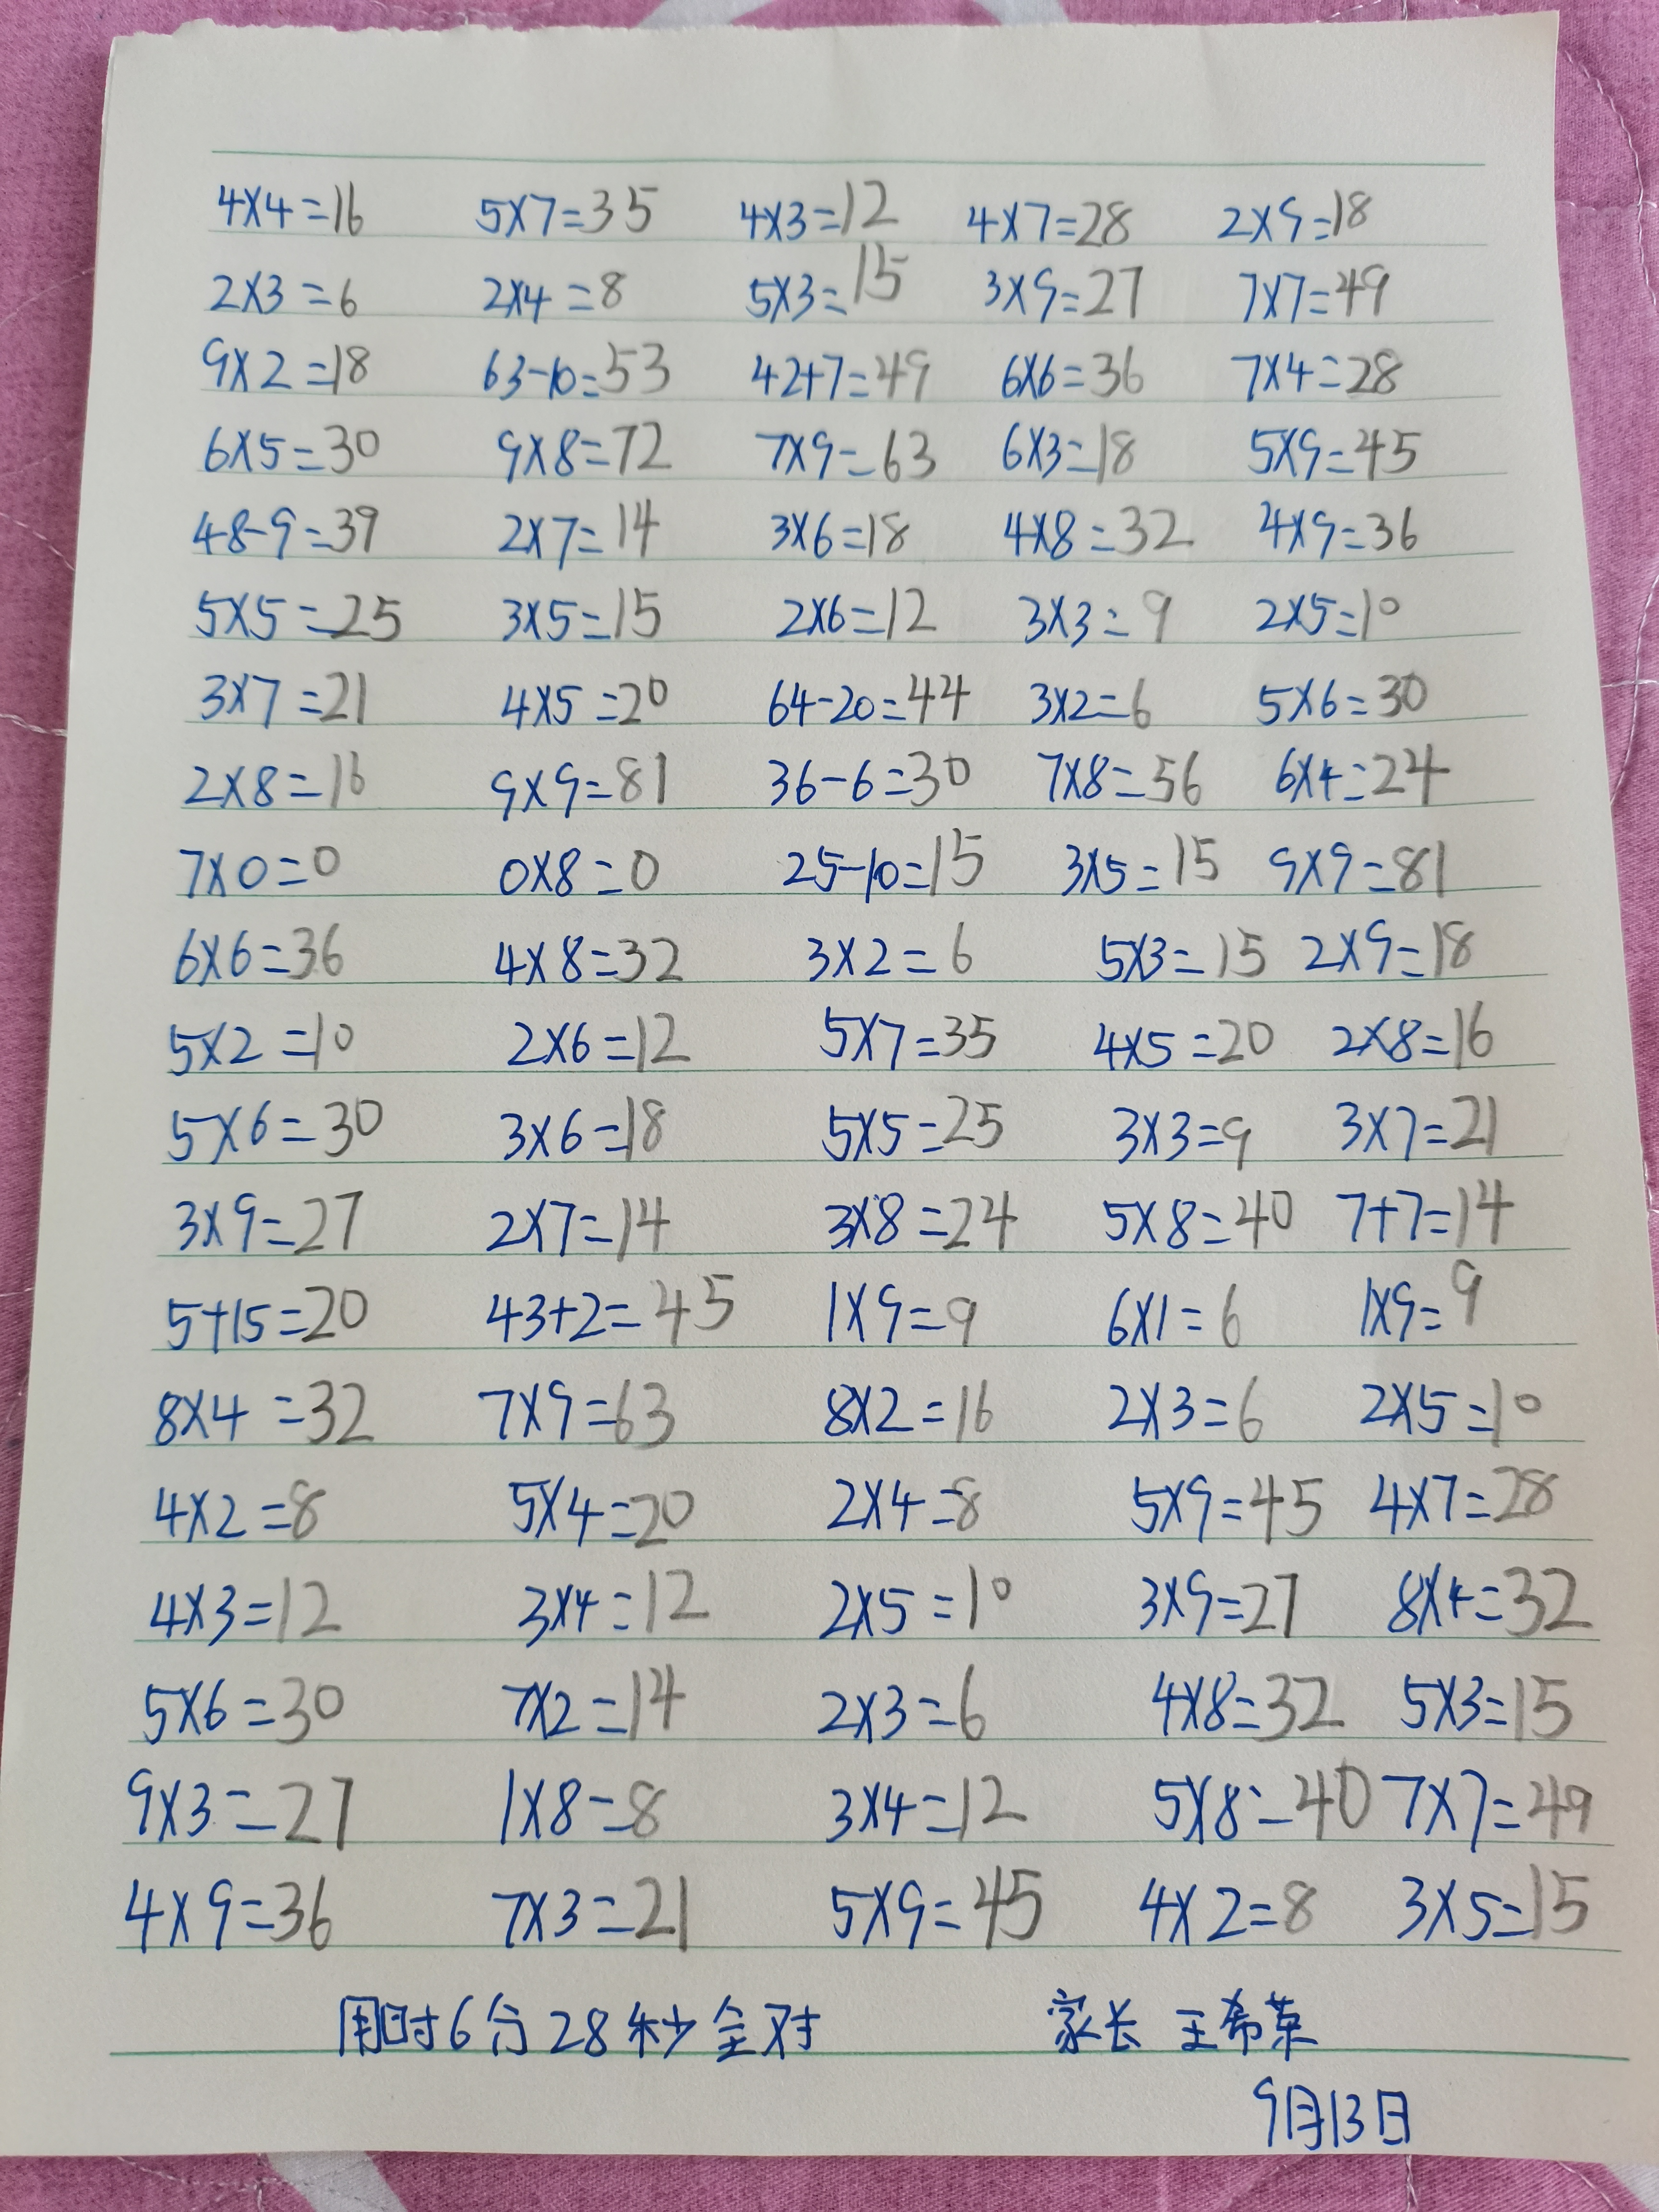 4×4=16 5×7=35 4×3=12 4×7=28 2×9=18
2×3=6 2×4=8 5×3=15 3×9=27 7×7=49
9×2=18 63-10=53 42+7=49 6×6=36 7×4=28
6×5=30 9×8=72 7×9=63 6×3=18 5×9=45
48-9=39 2×7=14 3×6=18 4×8=32 4×9=36
5×5=25 3×5=15 2×6=12 3×3=9 2×5=10
3×7=21 4×5=20 64-20=44 3×2=6 5×6=30
2×8=16 9×9=81 36-6=30 7×8=56 6×4=24
7×0=0 0×8=0 25-10=15 3×5=15 9×9=81
6×6=36 4×8=32 3×2=6 5×3=15 2×9=18
5×2=10 2×6=12 5×7=35 4×5=20 2×8=16
5×6=30 3×6=18 5×5=25 3×3=9 3×7=21
3×9=27 2×7=14 3×8=24 5×8=40 7+7=14
5+15=20 43+2=45 1×9=9 6×1=6 1×9=9
8×4=32 7×9=63 8×2=16 2×3=6 2×5=10
4×2=8 5×4=20 2×4=8 5×9=45 4×7=28
4×3=12 3×4=12 2×5=10 3×9=27 8×4=32
5×6=30 7×2=14 2×3=6 4×8=32 5×3=15
9×3=27 1×8=8 3×4=12 5×8=40 7×7=49
4×9=36 7×3=21 5×9=45 4×2=8 3×5=15
用时6分28秒全对 家长 王希荣
9月13日